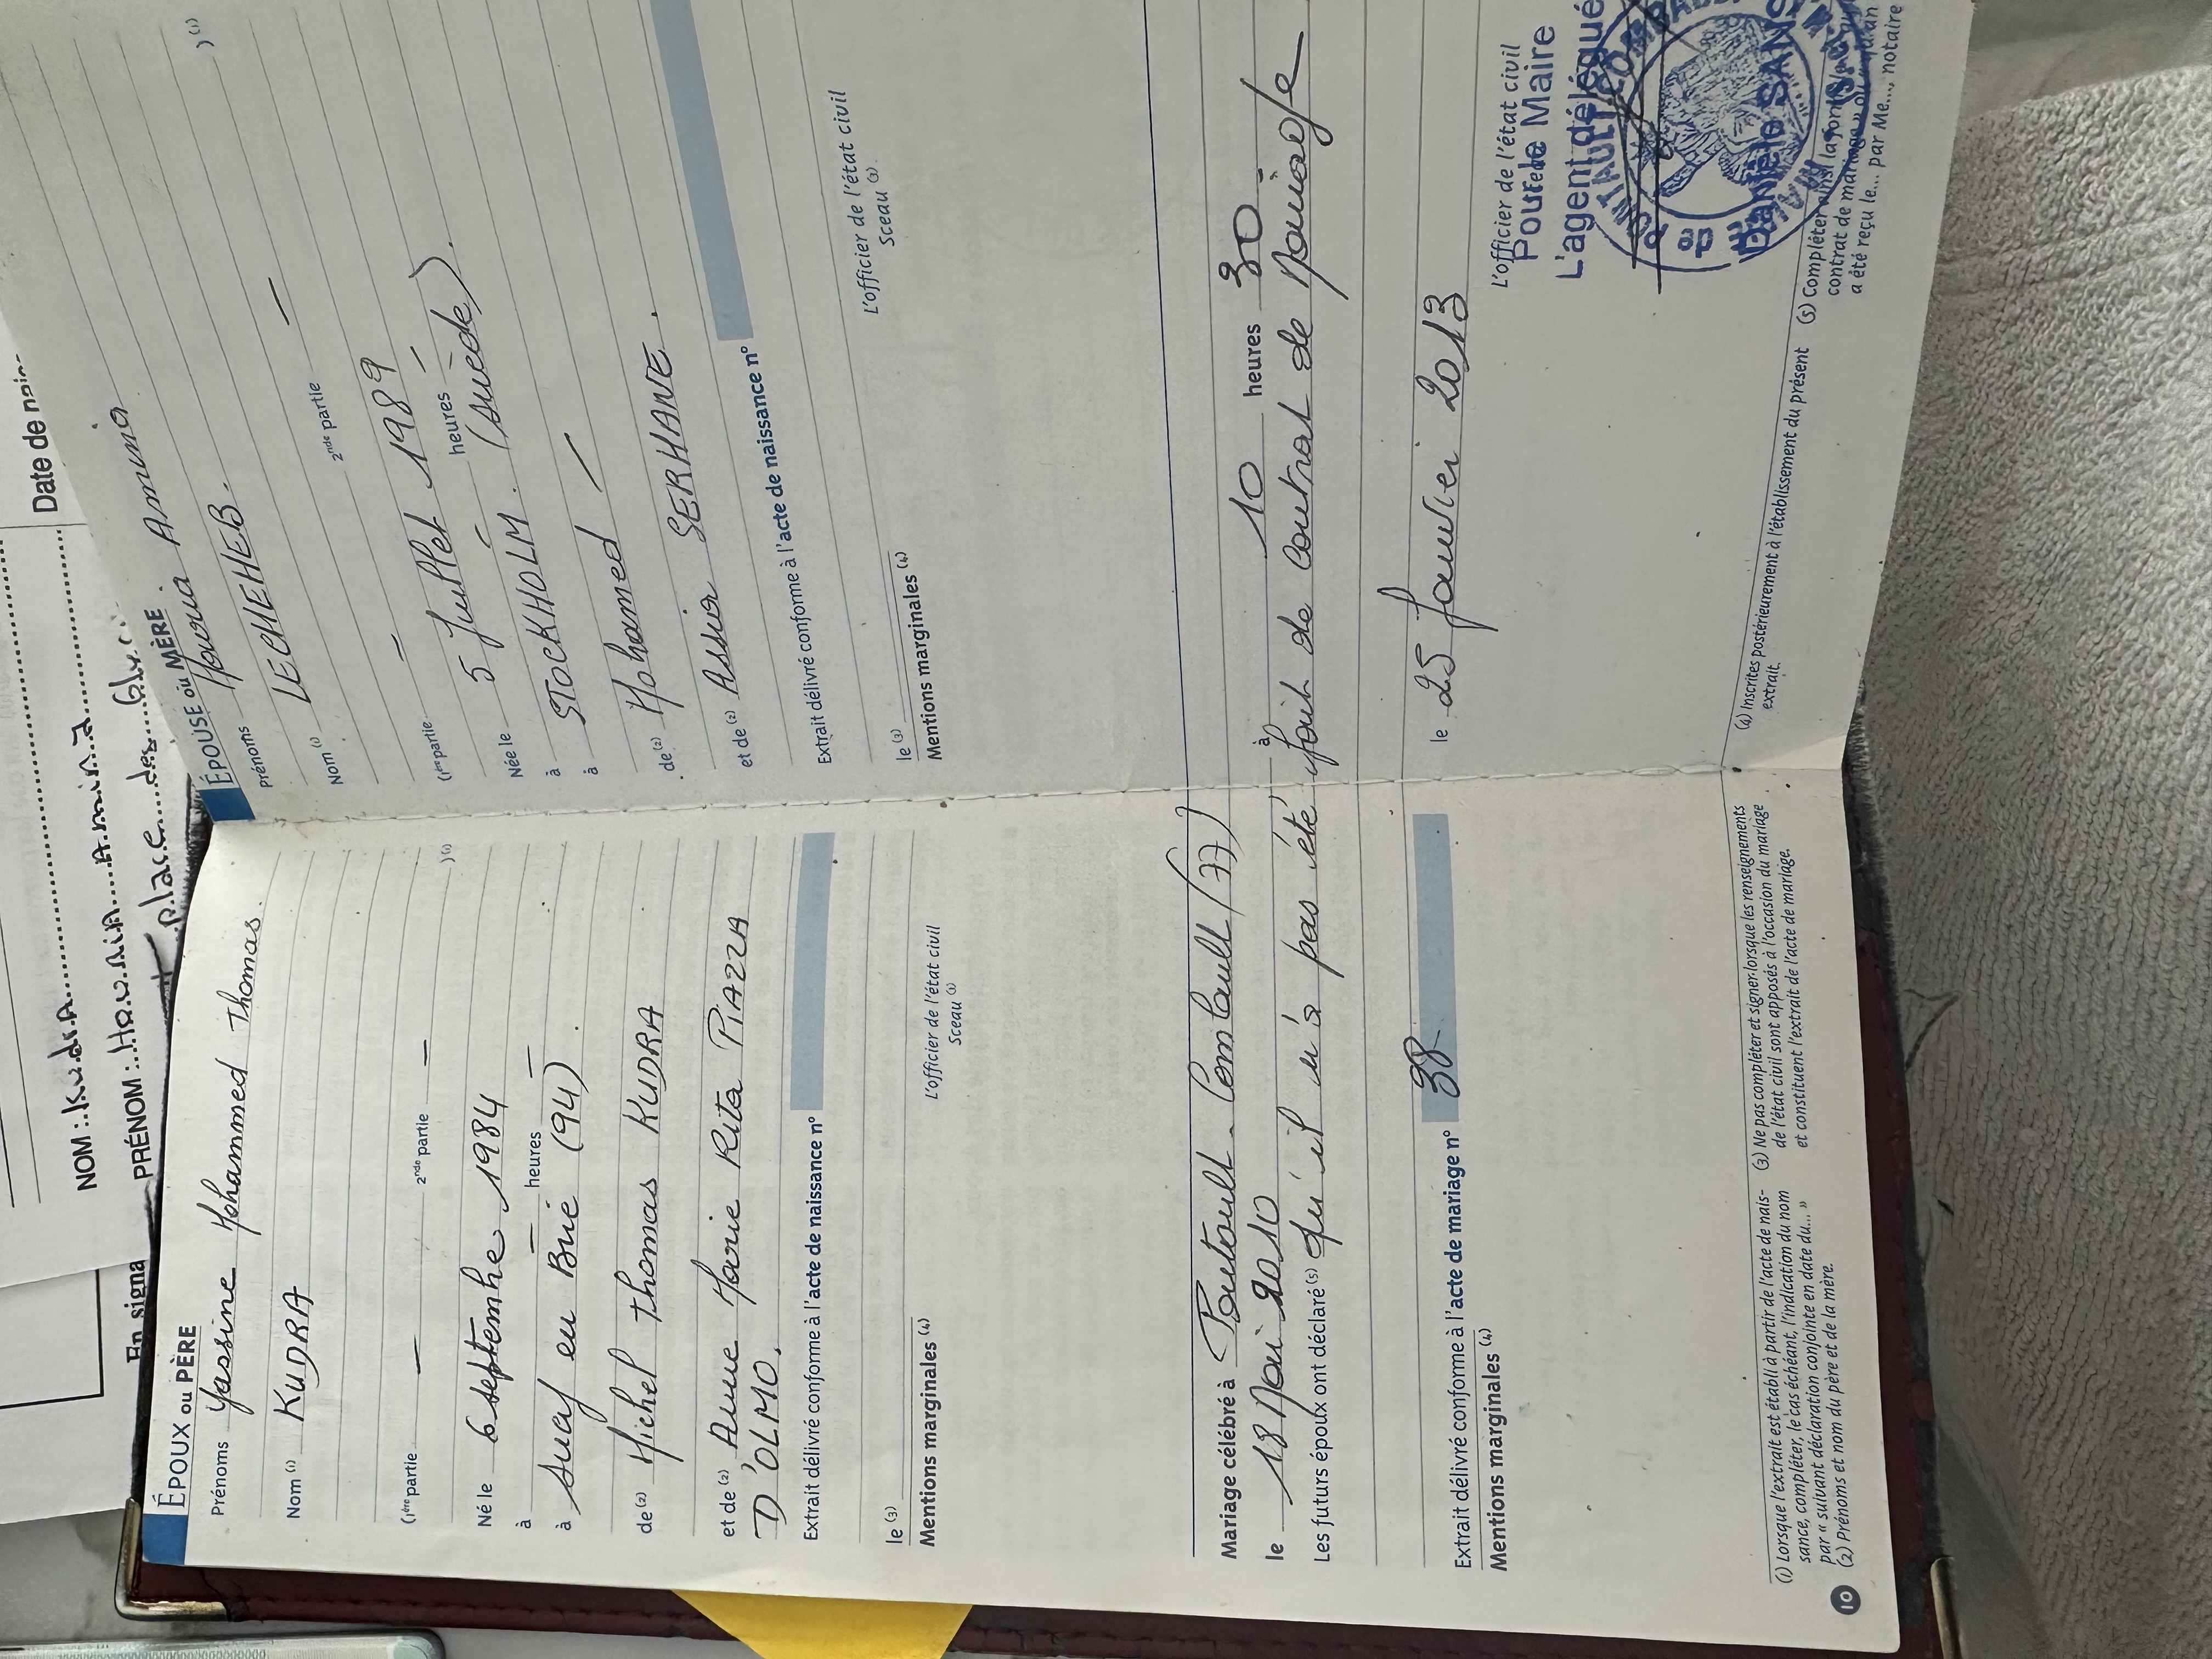 Date de nais
NOM : Kudra
PRÉNOM : Houria Amina
place des
En signa
ÉPOUX ou PÈRE
Prénoms Yassine Mohammed Thomas.
Nom (1) KUDRA
)(1)
(1ère partie — 2nde partie —
Né le 6 septembre 1984
à — heures —
à Sucy en Brie (94).
de (2) Michel Thomas KUDRA
et de (2) Anne Marie Rita PIAZZA
D'OLMO.
Extrait délivré conforme à l'acte de naissance n°
le (3)
L'officier de l'état civil
Sceau (3)
Mentions marginales (4)
ÉPOUSE ou MÈRE
Prénoms Houria Amina
Nom (1) LECHEHEB.
)(1)
(1ère partie — 2nde partie —
Née le 5 Juillet 1989
à — heures —
à STOCKHOLM. (Suède).
de (2) Mohamed —
et de (2) Assia SERHANE.
Extrait délivré conforme à l'acte de naissance n°
le (3)
L'officier de l'état civil
Sceau (3)
Mentions marginales (4)
Mariage célébré à Pontault-Combault (77)
le 18 Mai 2010 à 10 heures 30.
Les futurs époux ont déclaré (5) qu'il n'a pas été fait de contrat de Mariage
Extrait délivré conforme à l'acte de mariage n° 38
le 25 Janvier 2013
Mentions marginales (4)
L'officier de l'état civil
Pour le Maire
L'agent délégué
Danièle SANS
(1) Lorsque l'extrait est établi à partir de l'acte de nais-
sance, compléter, le cas échéant, l'indication du nom
par « suivant déclaration conjointe en date du... »
(2) Prénoms et nom du père et de la mère.
(3) Ne pas compléter et signer lorsque les renseignements
de l'état civil sont apposés à l'occasion du mariage
et constituent l'extrait de l'acte de mariage.
(4) Inscrites postérieurement à l'établissement du présent
extrait.
(5) Compléter ainsi
contrat de mariage
a été reçu le... par Me..., notaire
10